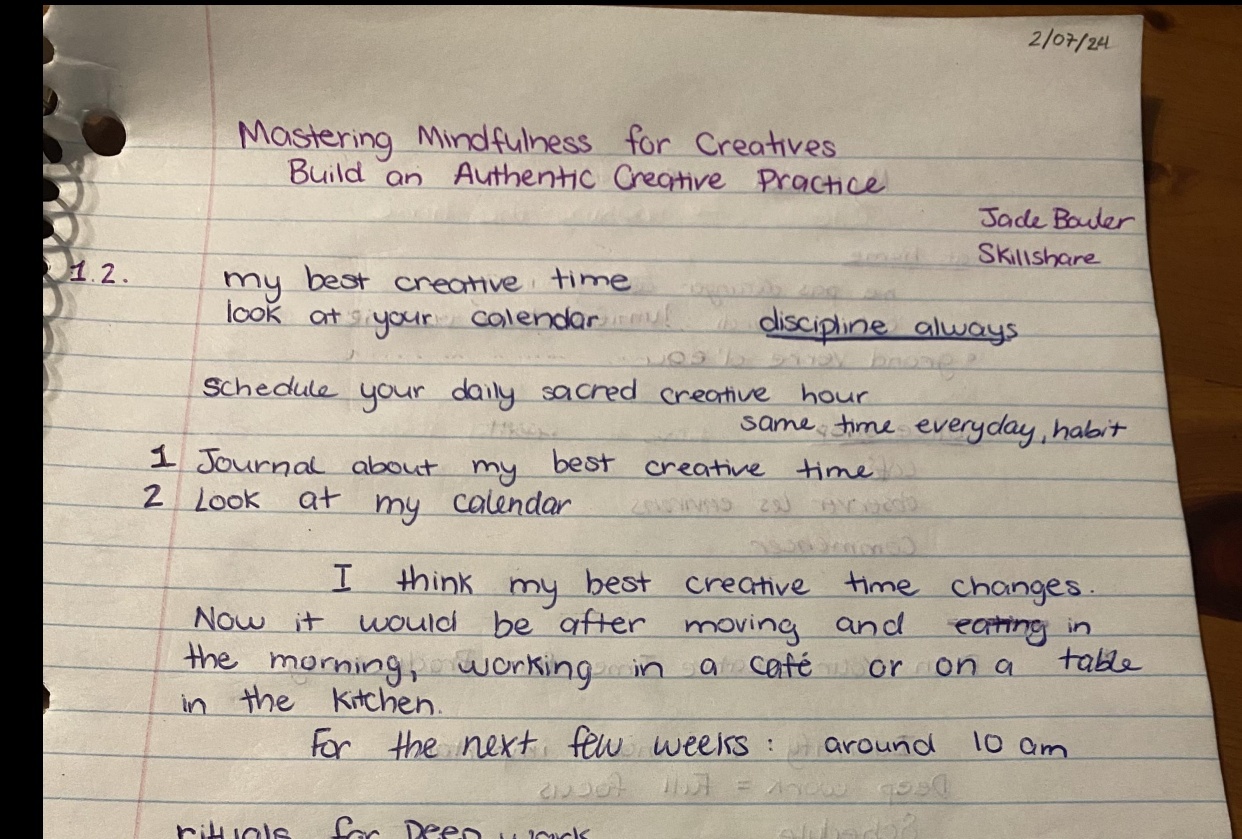 2/07/24
Mastering Mindfulness for Creatives
Build an Authentic Creative Practice
Jade Bowler
Skillshare
1.2. my best creative time
look at your calendar discipline always
schedule your daily sacred creative hour
same time everyday, habit
1 Journal about my best creative time
2 Look at my calendar
I think my best creative time changes.
Now it would be after moving and eating in
the morning, working in a café or on a table
in the kitchen.
For the next few weeks: around 10 am
rituals for Deep work